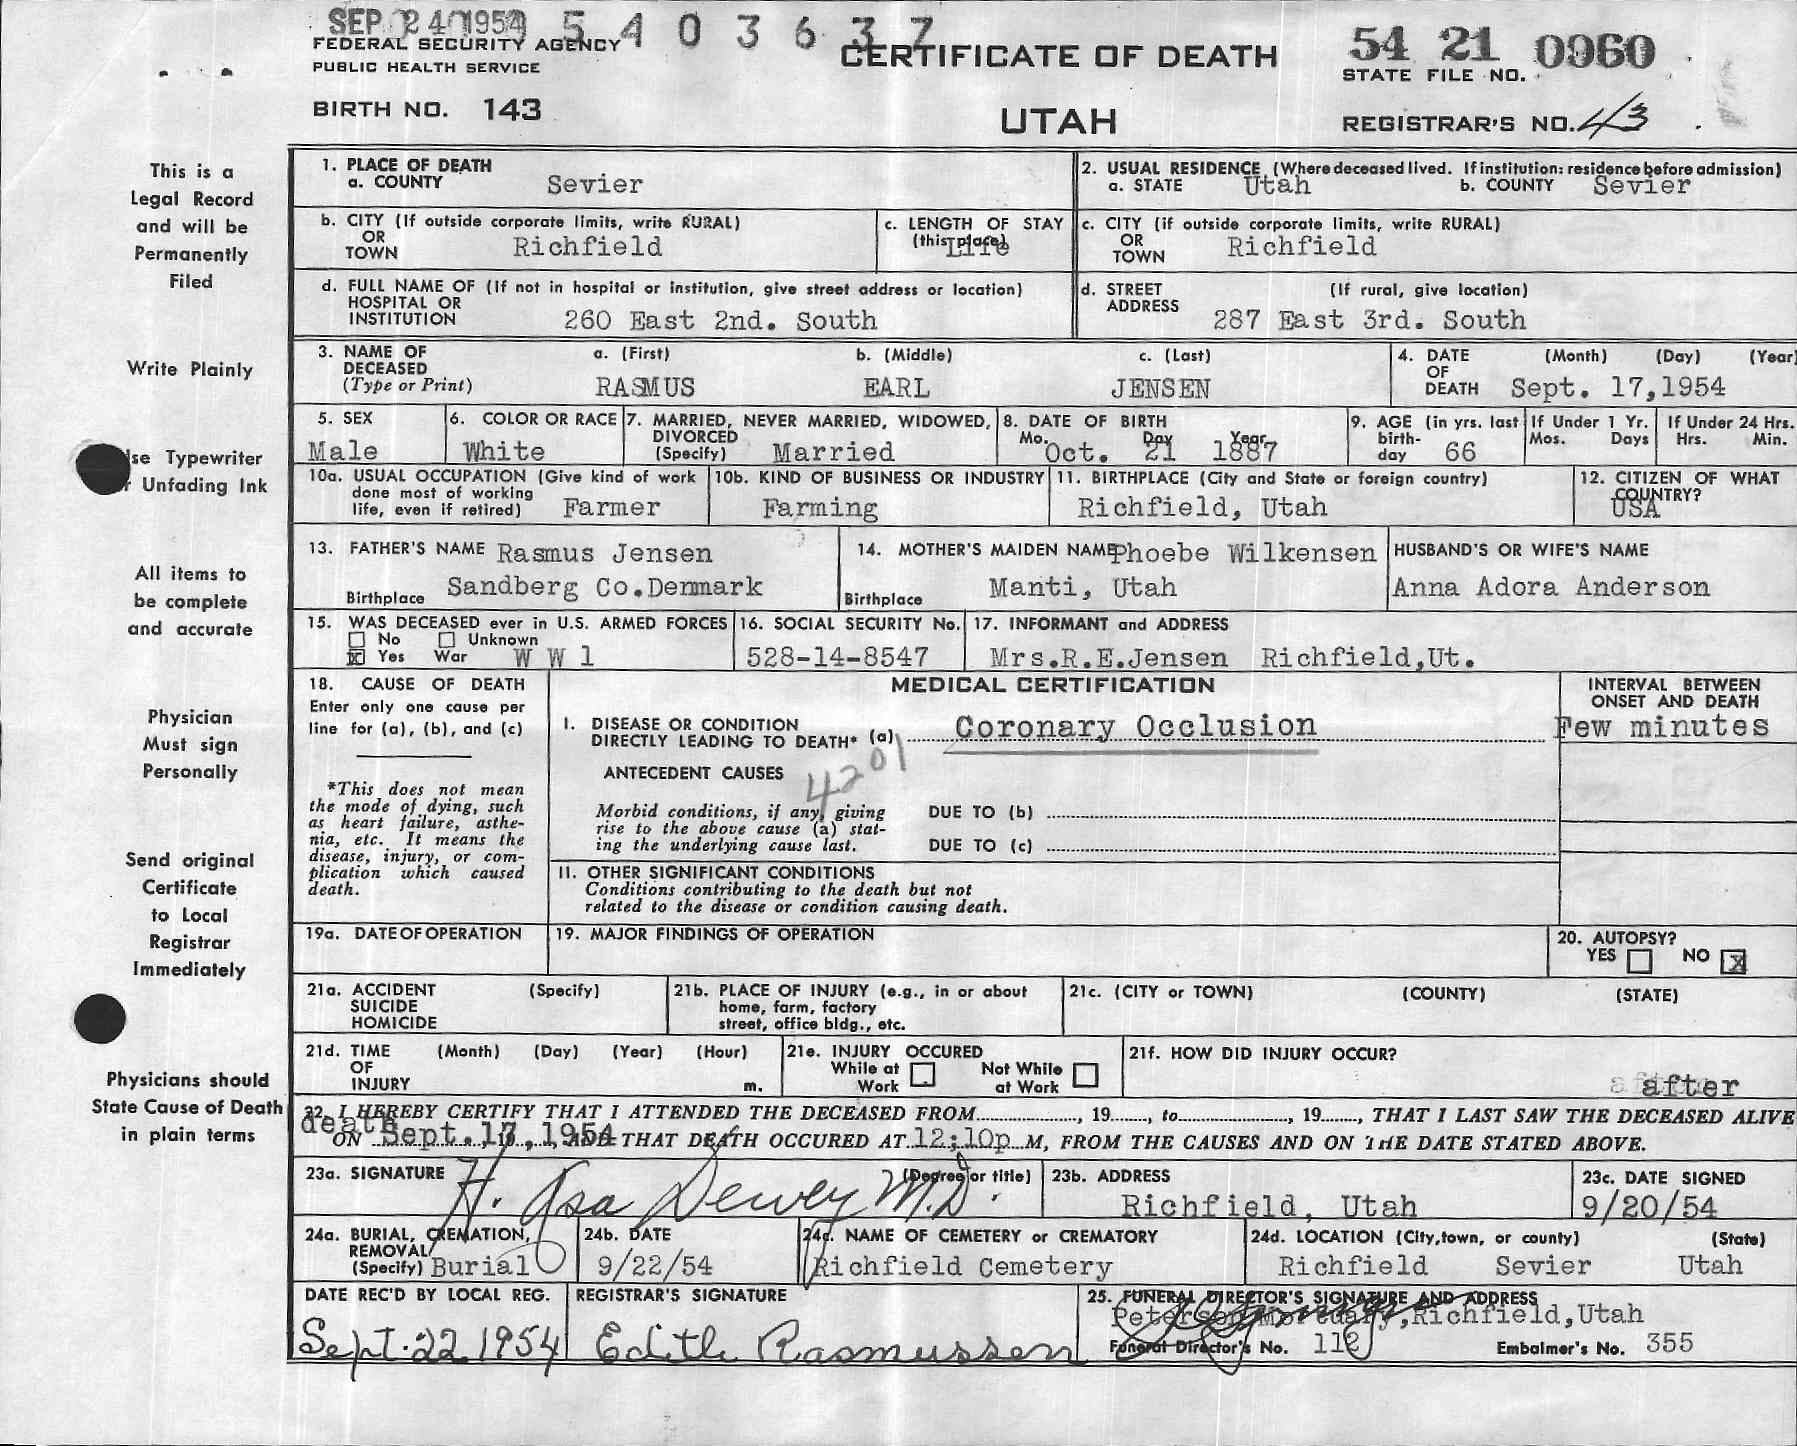 SEP 24 1954 5403637
FEDERAL SECURITY AGENCY
PUBLIC HEALTH SERVICE
BIRTH NO. 143
CERTIFICATE OF DEATH
UTAH
54 21 0960
STATE FILE NO.
REGISTRAR'S NO. 43
This is a
Legal Record
and will be
Permanently
Filed
Write Plainly
se Typewriter
r Unfading Ink
All items to
be complete
and accurate
Physician
Must sign
Personally
Send original
Certificate
to Local
Registrar
Immediately
Physicians should
State Cause of Death
in plain terms
1. PLACE OF DEATH
a. COUNTY Sevier
2. USUAL RESIDENCE (Where deceased lived. If institution: residence before admission)
a. STATE Utah b. COUNTY Sevier
b. CITY (If outside corporate limits, write RURAL)
OR
TOWN Richfield
c. LENGTH OF STAY
(this place) Life
c. CITY (if outside corporate limits, write RURAL)
OR
TOWN Richfield
d. FULL NAME OF (If not in hospital or institution, give street address or location)
HOSPITAL OR
INSTITUTION 260 East 2nd. South
d. STREET (If rural, give location)
ADDRESS 287 East 3rd. South
3. NAME OF DECEASED
(Type or Print)
a. (First) b. (Middle) c. (Last)
RASMUS EARL JENSEN
4. DATE OF DEATH (Month) (Day) (Year)
Sept. 17,1954
5. SEX
Male
6. COLOR OR RACE
White
7. MARRIED, NEVER MARRIED, WIDOWED,
DIVORCED
(Specify) Married
8. DATE OF BIRTH
Mo. Day Year
Oct. 21 1887
9. AGE (in yrs. last
birth-
day 66
If Under 1 Yr.
Mos. Days
If Under 24 Hrs.
Hrs. Min.
10a. USUAL OCCUPATION (Give kind of work
done most of working
life, even if retired) Farmer
10b. KIND OF BUSINESS OR INDUSTRY
Farming
11. BIRTHPLACE (City and State or foreign country)
Richfield, Utah
12. CITIZEN OF WHAT
COUNTRY?
USA
13. FATHER'S NAME Rasmus Jensen
Birthplace Sandberg Co.Denmark
14. MOTHER'S MAIDEN NAME Phoebe Wilkensen
Birthplace Manti, Utah
HUSBAND'S OR WIFE'S NAME
Anna Adora Anderson
15. WAS DECEASED ever in U.S. ARMED FORCES
No Unknown
x Yes War W W 1
16. SOCIAL SECURITY No.
528-14-8547
17. INFORMANT and ADDRESS
Mrs.R.E.Jensen Richfield,Ut.
18. CAUSE OF DEATH
Enter only one cause per
line for (a), (b), and (c)
*This does not mean
the mode of dying, such
as heart failure, asthe-
nia, etc. It means the
disease, injury, or com-
plication which caused
death.
MEDICAL CERTIFICATION
INTERVAL BETWEEN
ONSET AND DEATH
I. DISEASE OR CONDITION
DIRECTLY LEADING TO DEATH* (a) Coronary Occlusion Few minutes
4201
ANTECEDENT CAUSES
Morbid conditions, if any, giving
rise to the above cause (a) stat-
ing the underlying cause last.
DUE TO (b)
DUE TO (c)
II. OTHER SIGNIFICANT CONDITIONS
Conditions contributing to the death but not
related to the disease or condition causing death.
19a. DATE OF OPERATION
19. MAJOR FINDINGS OF OPERATION
20. AUTOPSY?
YES NO X
21a. ACCIDENT (Specify)
SUICIDE
HOMICIDE
21b. PLACE OF INJURY (e.g., in or about
home, farm, factory
street, office bldg., etc.
21c. (CITY or TOWN) (COUNTY) (STATE)
21d. TIME (Month) (Day) (Year) (Hour)
OF
INJURY m.
21e. INJURY OCCURED
While at Work Not While at Work
21f. HOW DID INJURY OCCUR?
after
22. I HEREBY CERTIFY THAT I ATTENDED THE DECEASED FROM............, 19......, to............, 19......, THAT I LAST SAW THE DECEASED ALIVE
death
ON Sept. 17, 1954 AND THAT DEATH OCCURED AT 12;10p M, FROM THE CAUSES AND ON THE DATE STATED ABOVE.
23a. SIGNATURE (Degree or title)
H. Asa Dewey M.D.
23b. ADDRESS
Richfield, Utah
23c. DATE SIGNED
9/20/54
24a. BURIAL, CREMATION,
REMOVAL
(Specify) Burial
24b. DATE
9/22/54
24c. NAME OF CEMETERY OR CREMATORY
Richfield Cemetery
24d. LOCATION (City,town, or county) (State)
Richfield Sevier Utah
DATE REC'D BY LOCAL REG.
Sept. 22, 1954
REGISTRAR'S SIGNATURE
Edith Rasmussen
25. FUNERAL DIRECTOR'S SIGNATURE AND ADDRESS
Peterson Mortuary,Richfield,Utah
Funeral Director's No. 112 Embalmer's No. 355